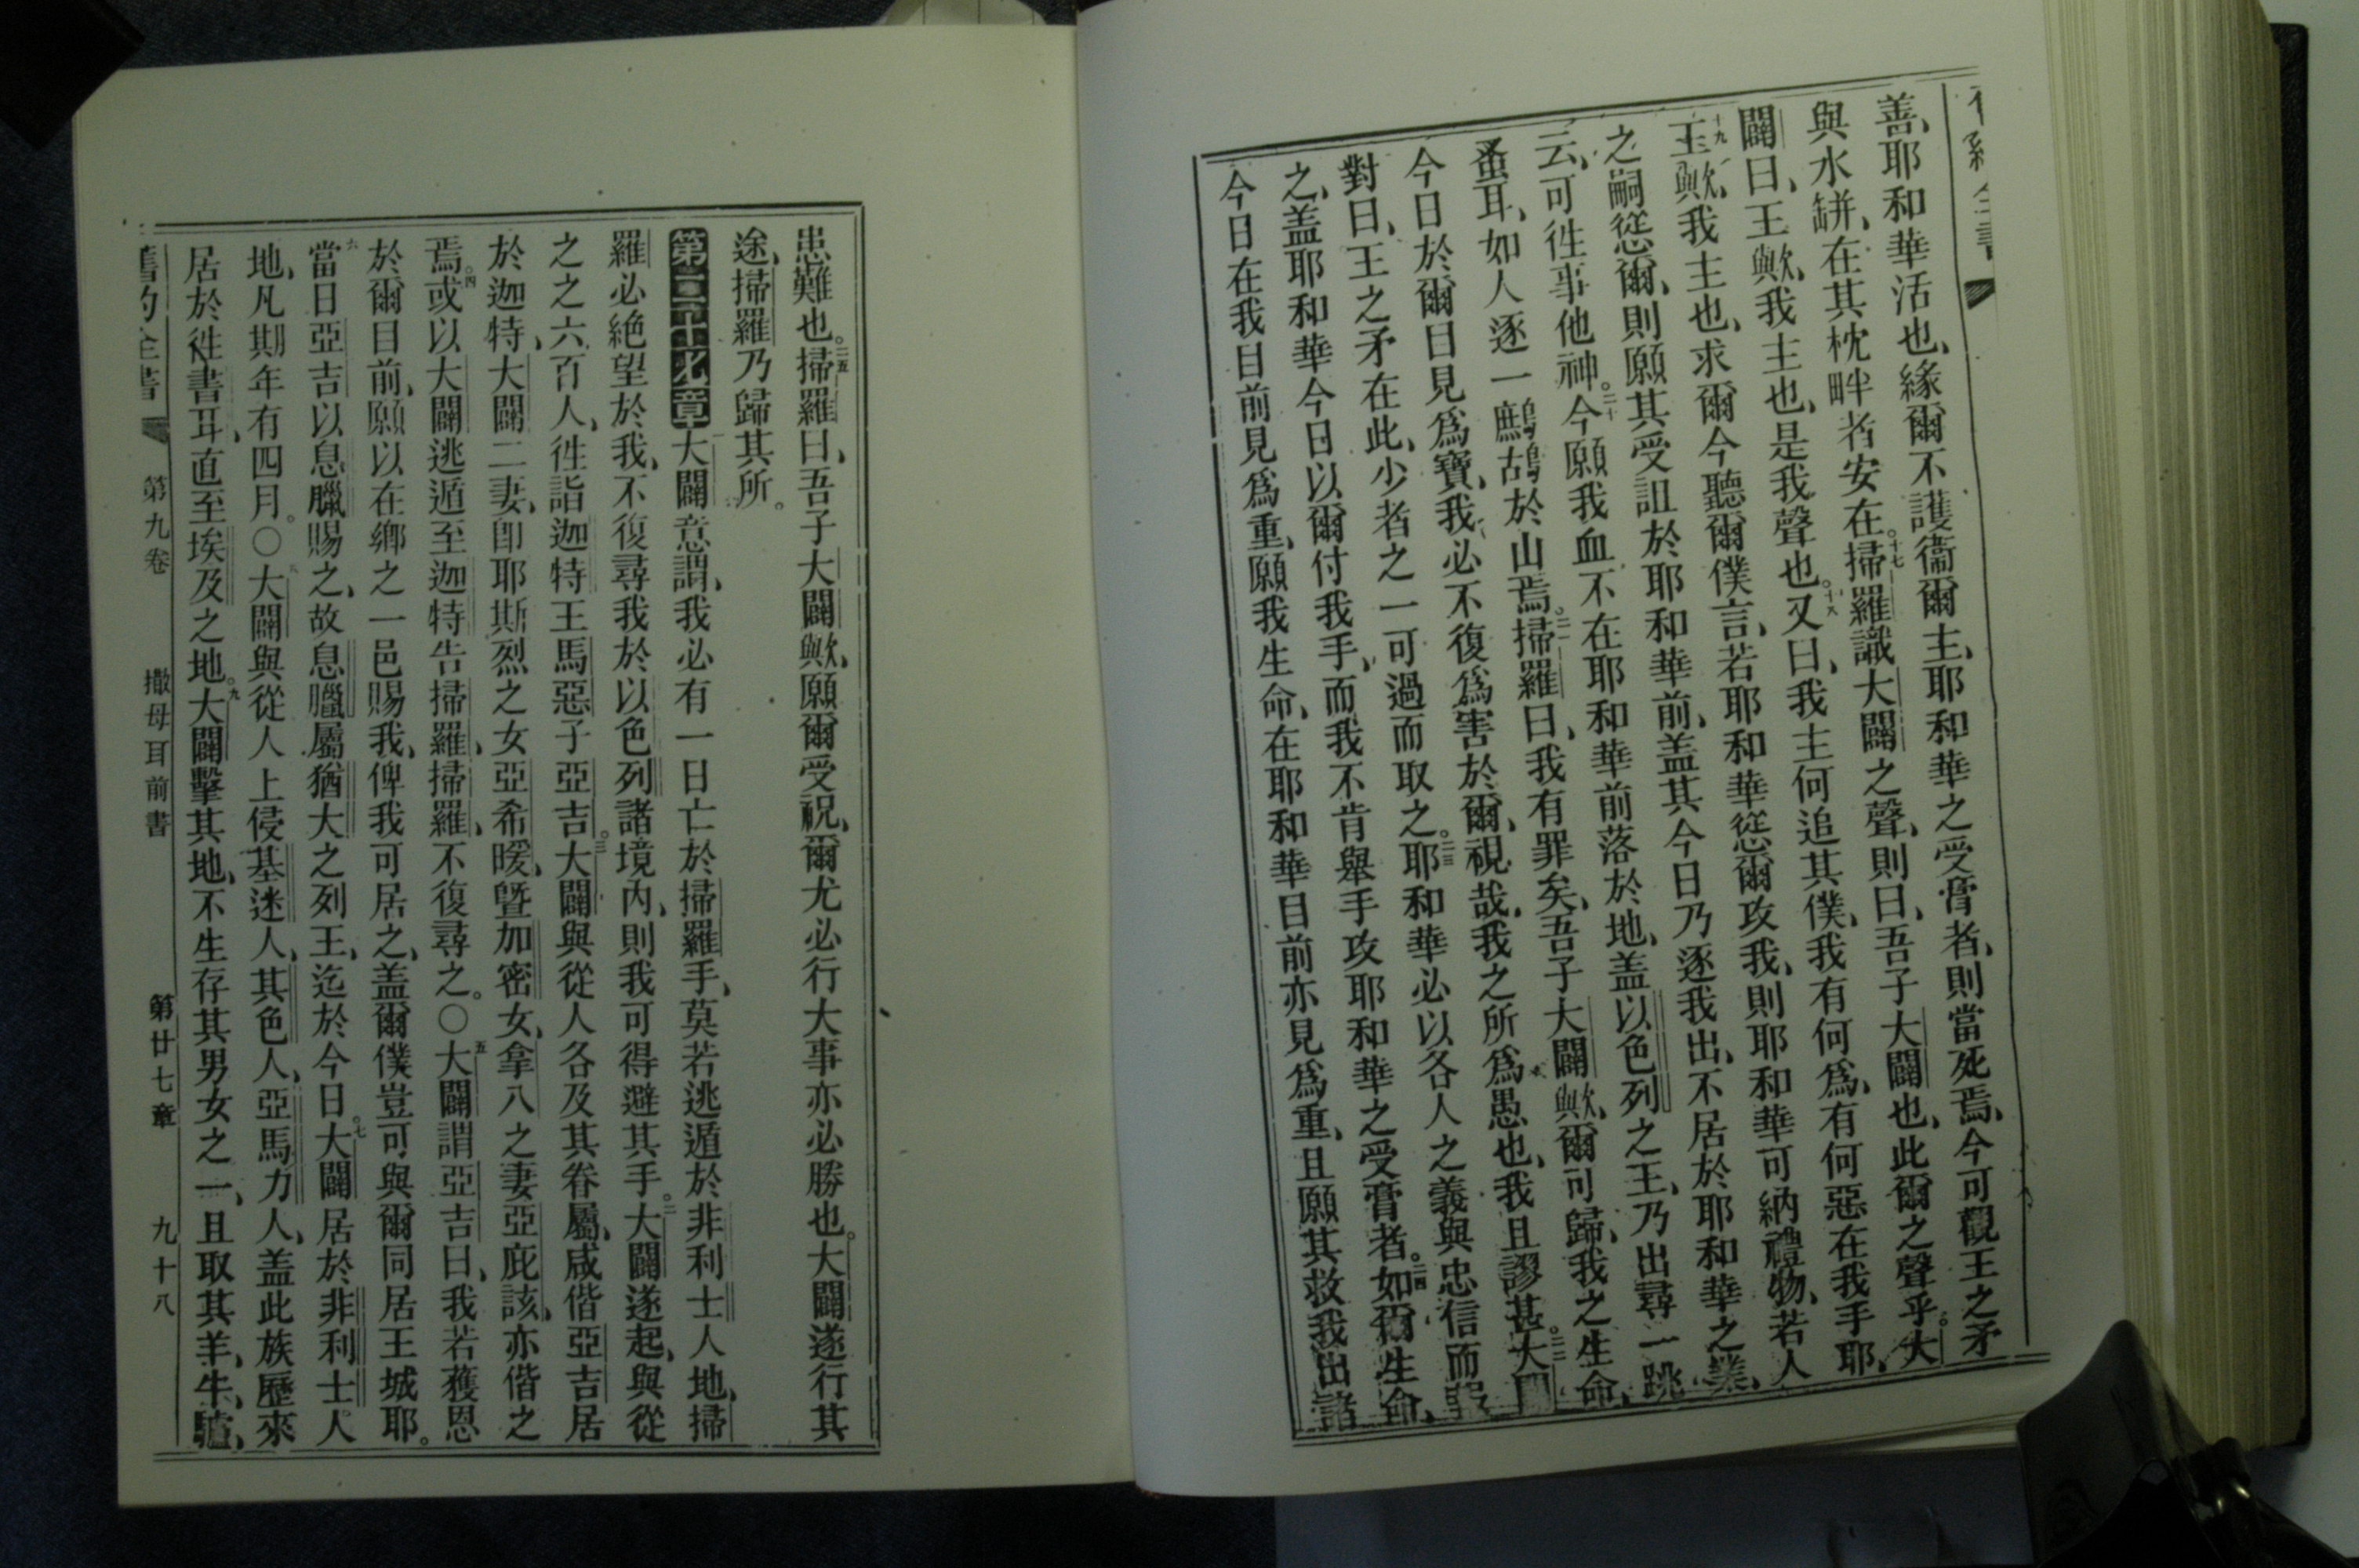 善、耶和華活也、緣爾不護衞爾主、耶和華之受膏者、則當死焉、今可觀王之矛
與水缾、在其枕畔者安在。十七掃羅識大闢之聲、則曰、吾子大闢也、此爾之聲乎。大
闢曰、王歟、我主也、是我聲也。十八又曰、我主何追其僕、我有何爲、有何惡在我手耶、
十九王歟、我主也、求爾今聽爾僕言、若耶和華慫爾攻我、則耶和華可納禮物、若人
之嗣慫爾、則願其受詛於耶和華前、盖其今日乃逐我出、不居於耶和華之業、
云、可徃事他神。二十今願我血不在耶和華前落於地、盖以色列之王、乃出尋一跳
蚤耳、如人逐一鷓鴣於山焉。二一掃羅曰、我有罪矣、吾子大闢歟、爾可歸、我之生命、
今日於爾目見爲寶、我必不復爲害於爾、視哉、我之所爲愚也、我且謬甚。二二大闢
對曰、王之矛在此、少者之一可過而取之。二三耶和華必以各人之義與忠信而報
之、盖耶和華今日以爾付我手、而我不肯舉手攻耶和華之受膏者。二四如爾生命、
今日在我目前見爲重、願我生命、在耶和華目前亦見爲重、且願其救我出諸
患難也。二五掃羅曰、吾子大闢歟、願爾受祝、爾尤必行大事亦必勝也。大闢遂行其
途、掃羅乃歸其所。
第二十七章 一大闢意謂、我必有一日亡於掃羅手、莫若逃遁於非利士人地、掃
羅必絕望於我、不復尋我於以色列諸境內、則我可得避其手。二大闢遂起、與從
之之六百人、徃詣迦特王馬惡子亞吉。三大闢與從人各及其眷屬、咸偕亞吉居
於迦特、大闢二妻、卽耶斯烈之女亞希暖、曁加密女、拿八之妻亞庇該、亦偕之
焉。四或以大闢逃遁至迦特告掃羅、掃羅、不復尋之。〇五大闢謂亞吉曰、我若獲恩
於爾目前、願以在鄉之一邑賜我、俾我可居之、盖爾僕豈可與爾同居王城耶。
六當日亞吉以息臘賜之、故息臘屬猶大之列王、迄於今日。七大闢居於非利士人
地、凡期年有四月。〇八大闢與從人上侵基迷人、其色人、亞馬力人、盖此族歷來
居於徃書耳、直至埃及之地。九大闢擊其地、不生存其男女之一、且取其羊、牛、驢、
舊約全書 第九卷 撒母耳前書 第廿七章 九十八